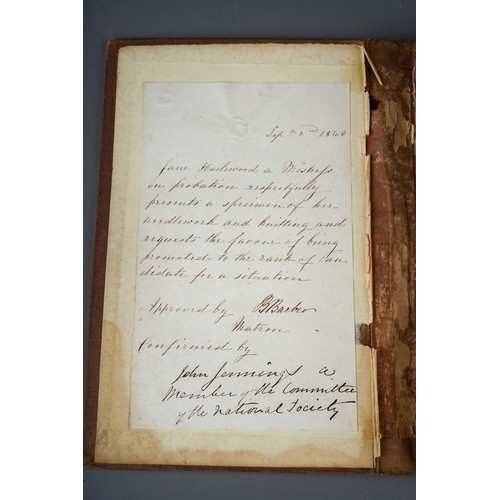 Sepr 2nd 1846
Jane Hackwood a Mistress
on probation respectfully
presents a specimen of her
needlework and knitting and
requests the favour of being
promoted to the rank of can
didate for a situation
Approved by
Matron
Confirmed by
John Jennings a
Member of the Committee
of the National Society